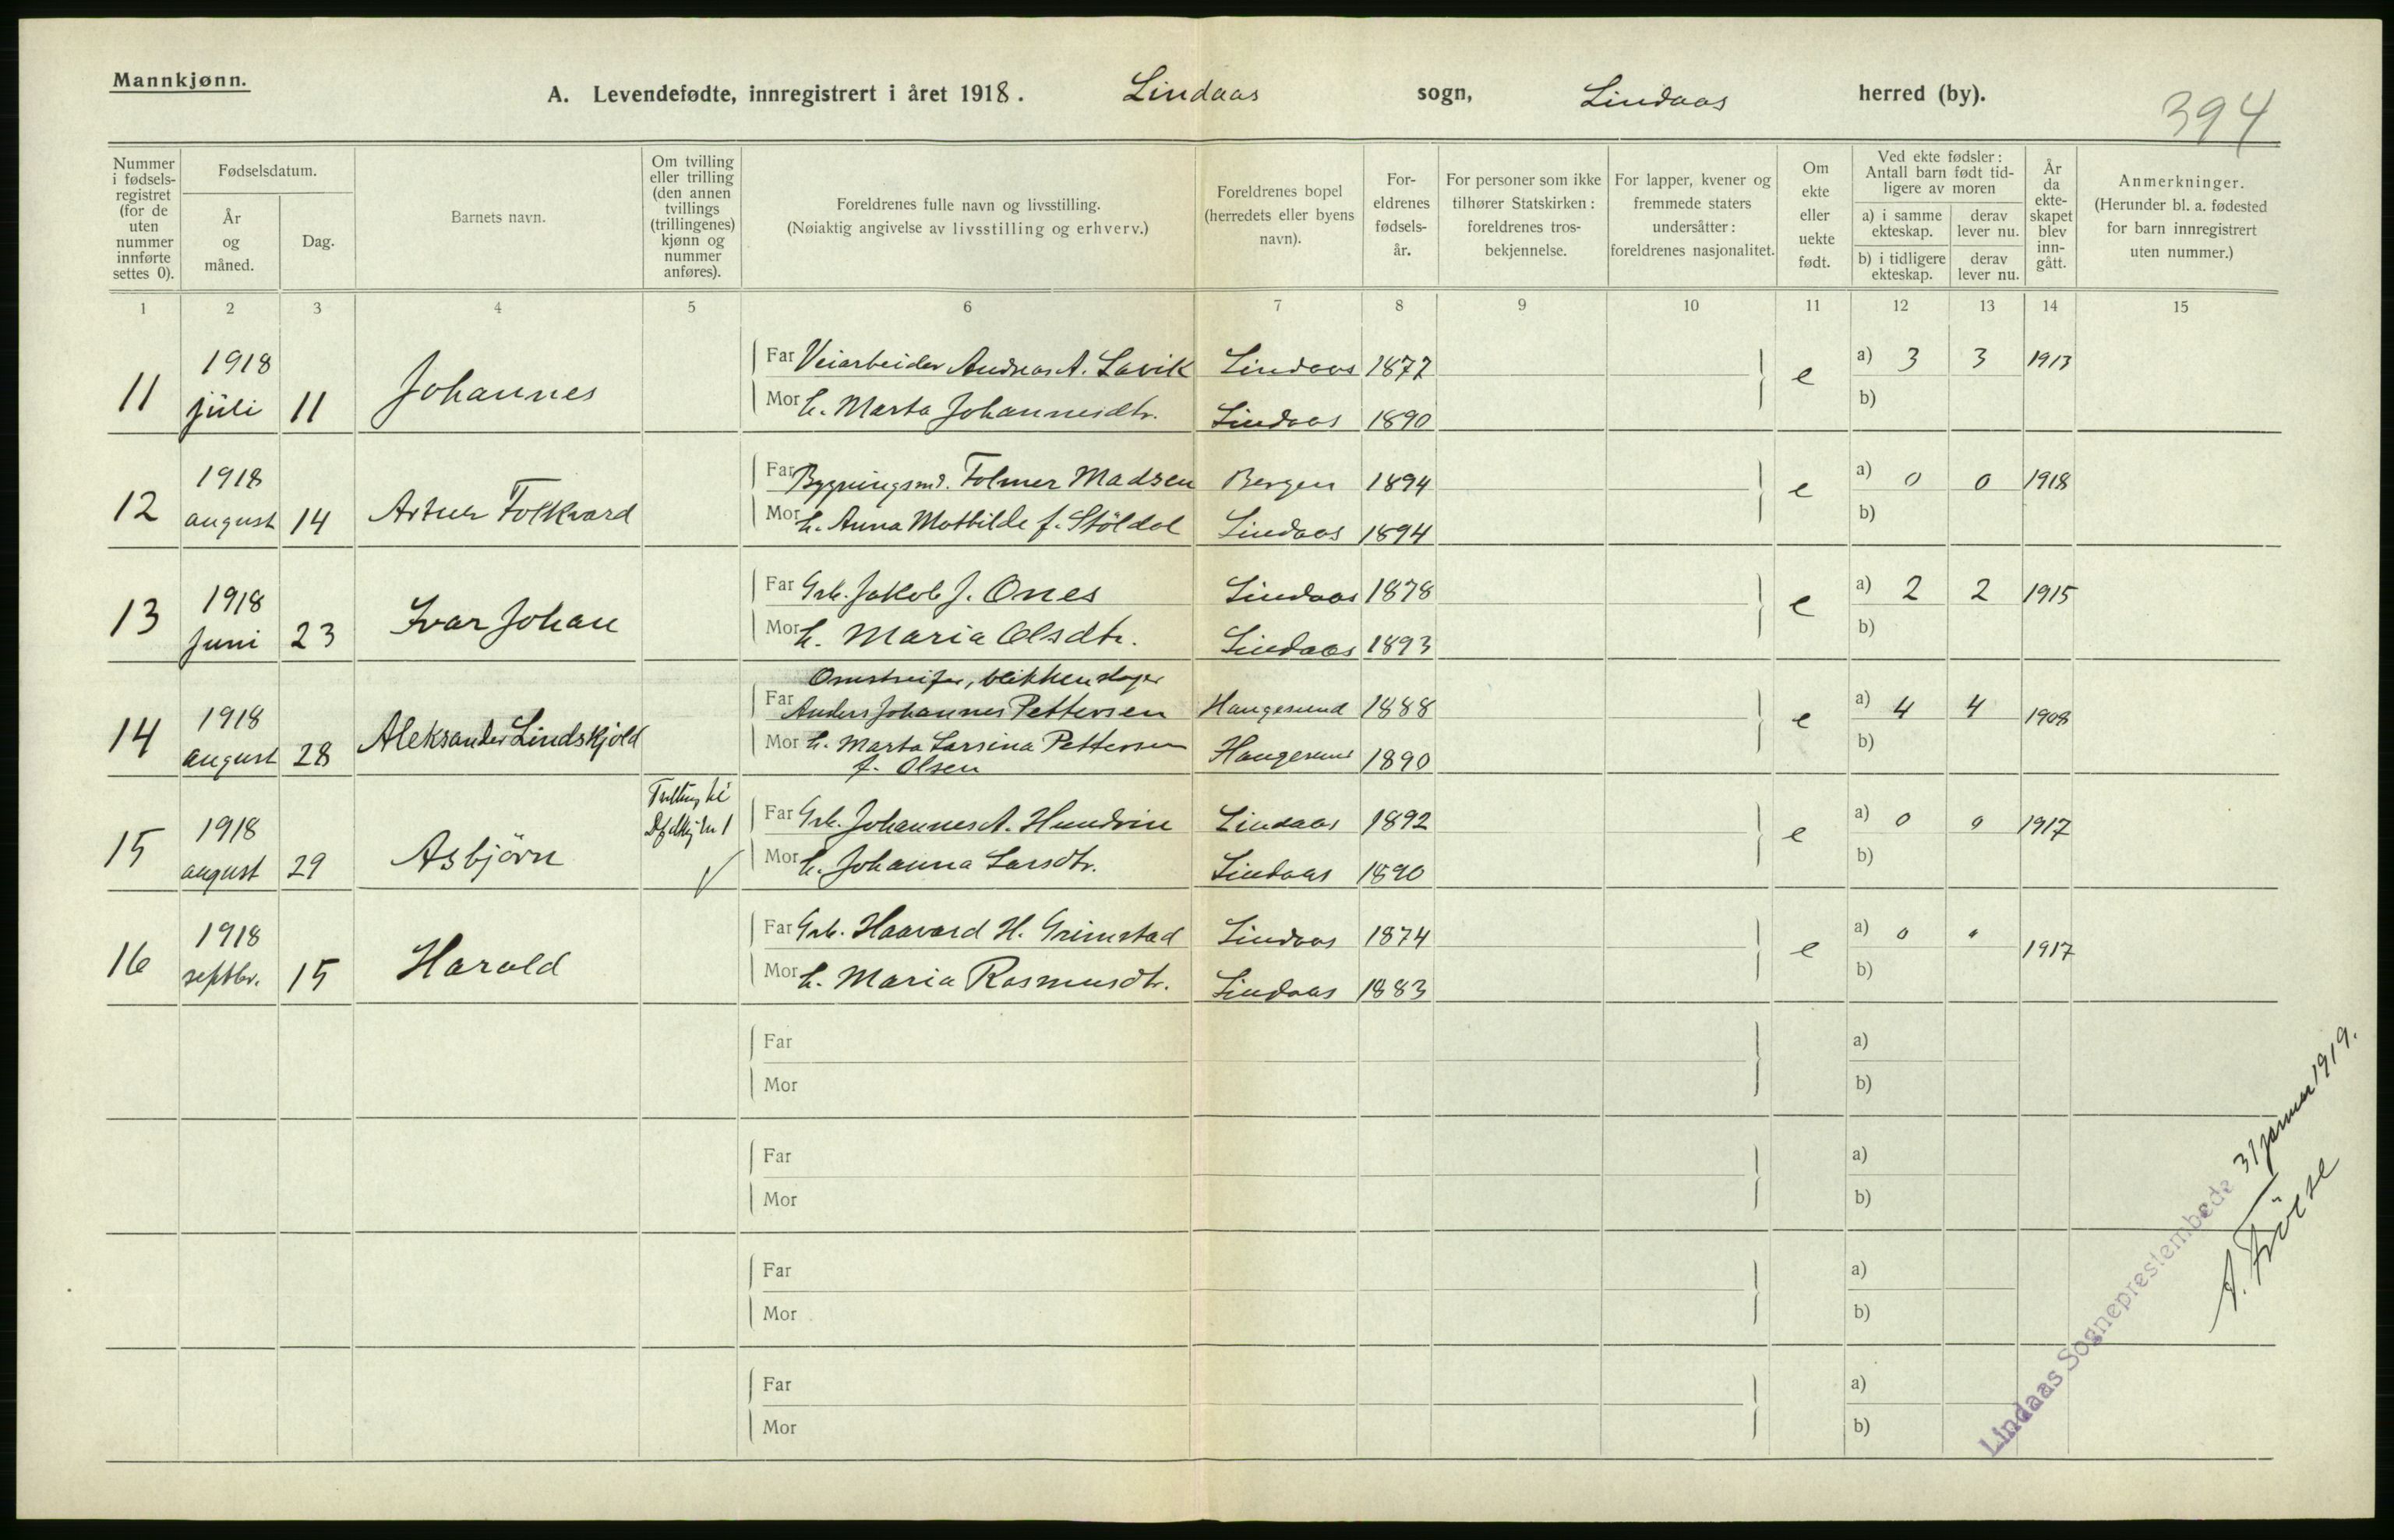 Mannkjønn.
A. Levendefødte, innregistrert i året 1918. Lindaas sogn, Lindaas herred (by).
394
Nummer i fødsels-registret (for de uten nummer innførte settes 0).
Fødselsdatum.
År og måned.
Dag.
Barnets navn.
Om tvilling eller trilling (den annen tvillings (trillingenes) kjønn og nummer anføres).
Foreldrenes fulle navn og livsstilling.
(Nøiaktig angivelse av livsstilling og erhverv.)
Foreldrenes bopel (herredets eller byens navn).
For-eldrenes fødsels-år.
For personer som ikke tilhører Statskirken: foreldrenes tros-bekjennelse.
For lapper, kvener og fremmede staters undersåtter: foreldrenes nasjonalitet.
Om ekte eller uekte født.
Ved ekte fødsler: Antall barn født tid-ligere av moren
a) i samme ekteskap.
derav lever nu.
b) i tidligere ekteskap.
derav lever nu.
År da ekte-skapet blev inn-gått.
Anmerkninger.
(Herunder bl. a. fødested for barn innregistrert uten nummer.)
1 2 3 4 5 6 7 8 9 10 11 12 13 14 15
11 1918 juli 11 Johannes
Far Veiarbeider Andreas A. Lavik Lindaas 1877 e a) 3 3 1913
Mor h. Marta Johannesdtr. Lindaas 1890 b)
12 1918 august 14 Artur Folkvard
Far Bygningsm. Folmer Madsen Bergen 1894 e a) 0 0 1918
Mor h. Anna Mathilde f. Stöldal Lindaas 1894 b)
13 1918 Juni 23 Ivar Johan
Far Grb. Jakob J. Ones Lindaas 1878 e a) 2 2 1915
Mor h. Maria Olsdtr. Lindaas 1893 b)
14 1918 august 28 Aleksander Lindskjold
Omstreifer, blikkenslager
Far Anders Johannes Pettersen Haugesund 1888 e a) 4 4 1908
Mor h. Marta Larsina Pettersen Haugesund 1890 b)
f. Olsen
15 1918 august 29 Asbjörn
Tvilling til
Far Grb. Johannes A. Hundvin Lindaas 1892 e a) 0 0 1917
Mor h. Johanna Larsdtr. Lindaas 1890 b)
16 1918 septbr. 15 Harald
Far Grb. Haavard H. Grimstad Lindaas 1874 e a) 0 " 1917
Mor h. Maria Rasmusdtr. Lindaas 1883 b)
Far a)
Mor b)
Far a)
Mor b)
Far a)
Mor b)
Far a)
Mor b)
Lindaas Sogneprestembede 31 januar 1919.